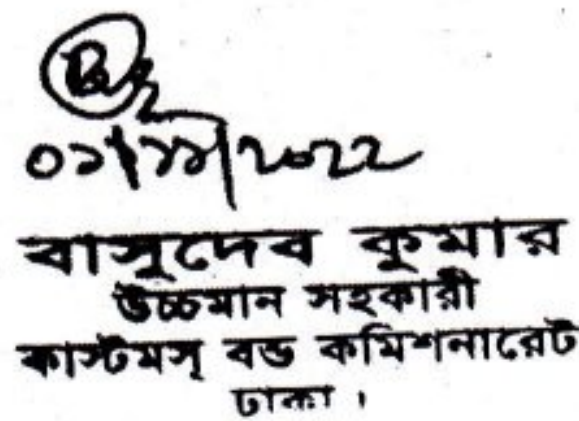 ০১/১১/২০২২
বাসুদেব কুমার
উচ্চমান সহকারী
কাস্টমস্ বন্ড কমিশনারেট
ঢাকা।